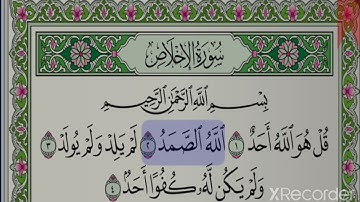 سُورَةُ الإِخْلَاصِ
بِسْمِ اللَّهِ الرَّحْمَٰنِ الرَّحِيمِ
قُلْ هُوَ اللَّهُ أَحَدٌ ١ اللَّهُ الصَّمَدُ ٢ لَمْ يَلِدْ وَلَمْ يُولَدْ ٣
وَلَمْ يَكُن لَّهُ كُفُوًا أَحَدٌ ٤
XRecorder